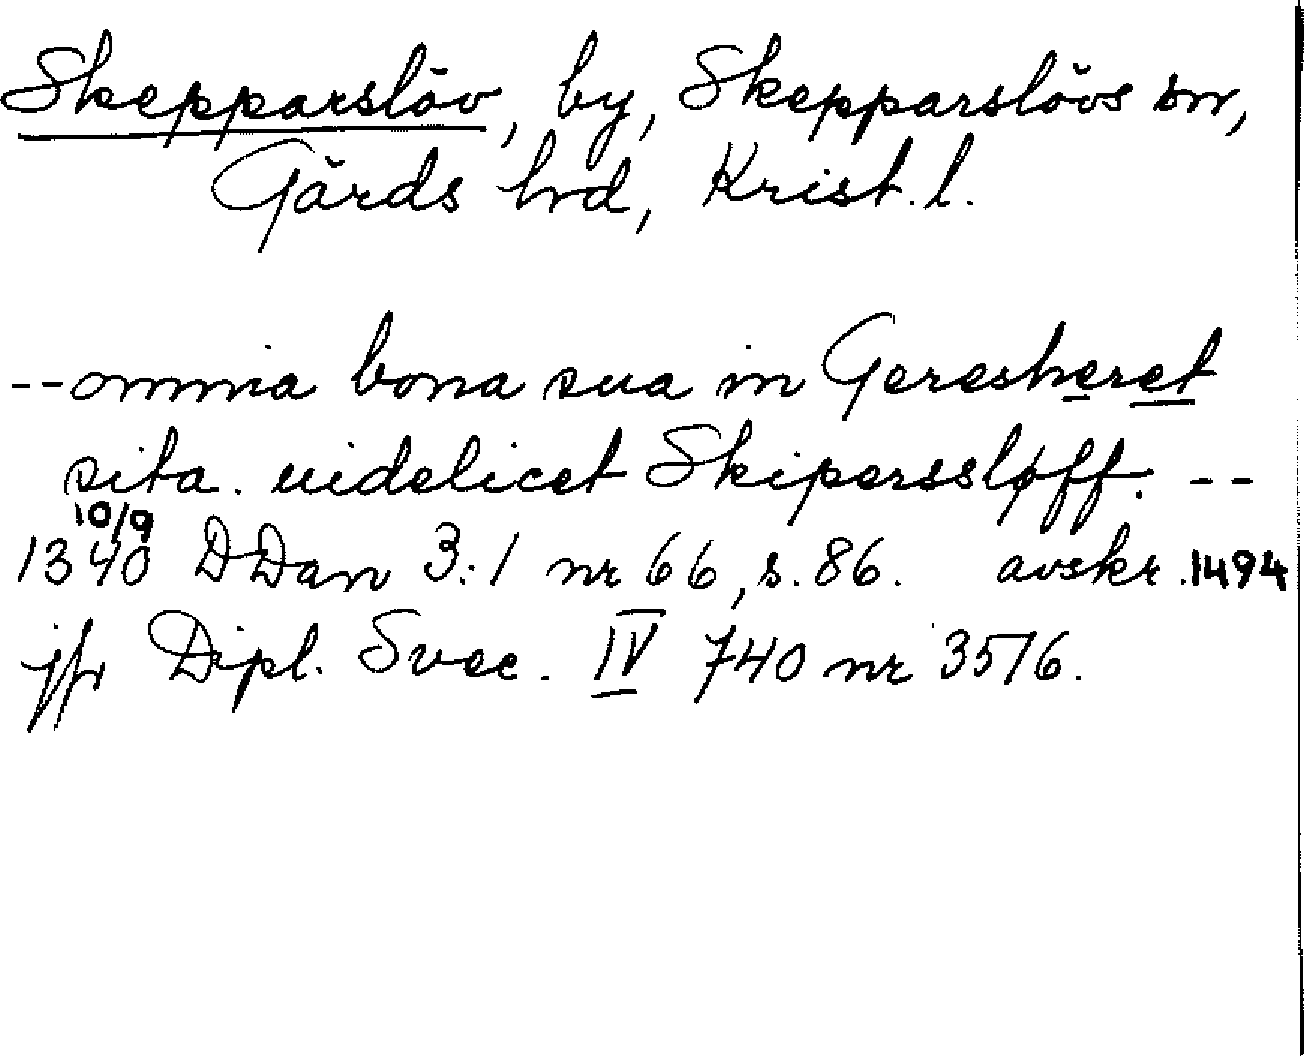 Skepparslöv, by, Skepparslövs sn,
Gärds hd, Krist. l.
-- omnia bona sua in Geresheret
sita. uidelicet Skiperssløff. --
10/9
1340 DDan 3:1 nr 66, s. 86. avskr. 1494
jfr Dipl. Svec. IV 740 nr 3516.